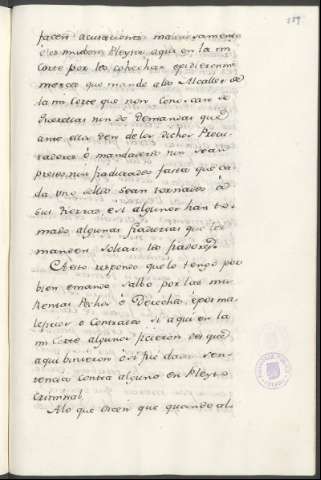 189
facen acusaciones maliciosamente
o les mueben Pleytos aqui en la mi
Corte por los cohechar epidieronme
merced que mande alos Alcalles de
la mi Corte que non conoscan de
querellas nin de Demandas que
ante ellos den delos dichos Procu-
radores ó mandaderos nin sean
presos nin fiadurados fasta que ca-
da uno dellos sean tornados á
sus tierras, e si algunos han to-
mado algunas fiadurias que les
manden soltar los fiadores
A esto respondo que lo tengo por
bien emando salbo por las mis
Rentas Pechos ó Derechos, épor ma-
leficios o Contratos si aqui en la
mi Corte algunos ficieron desque
aqui binieron ó si fue dada sen-
tencia contra alguno en Pleyto
Criminal,
A lo que dicen que quando al-